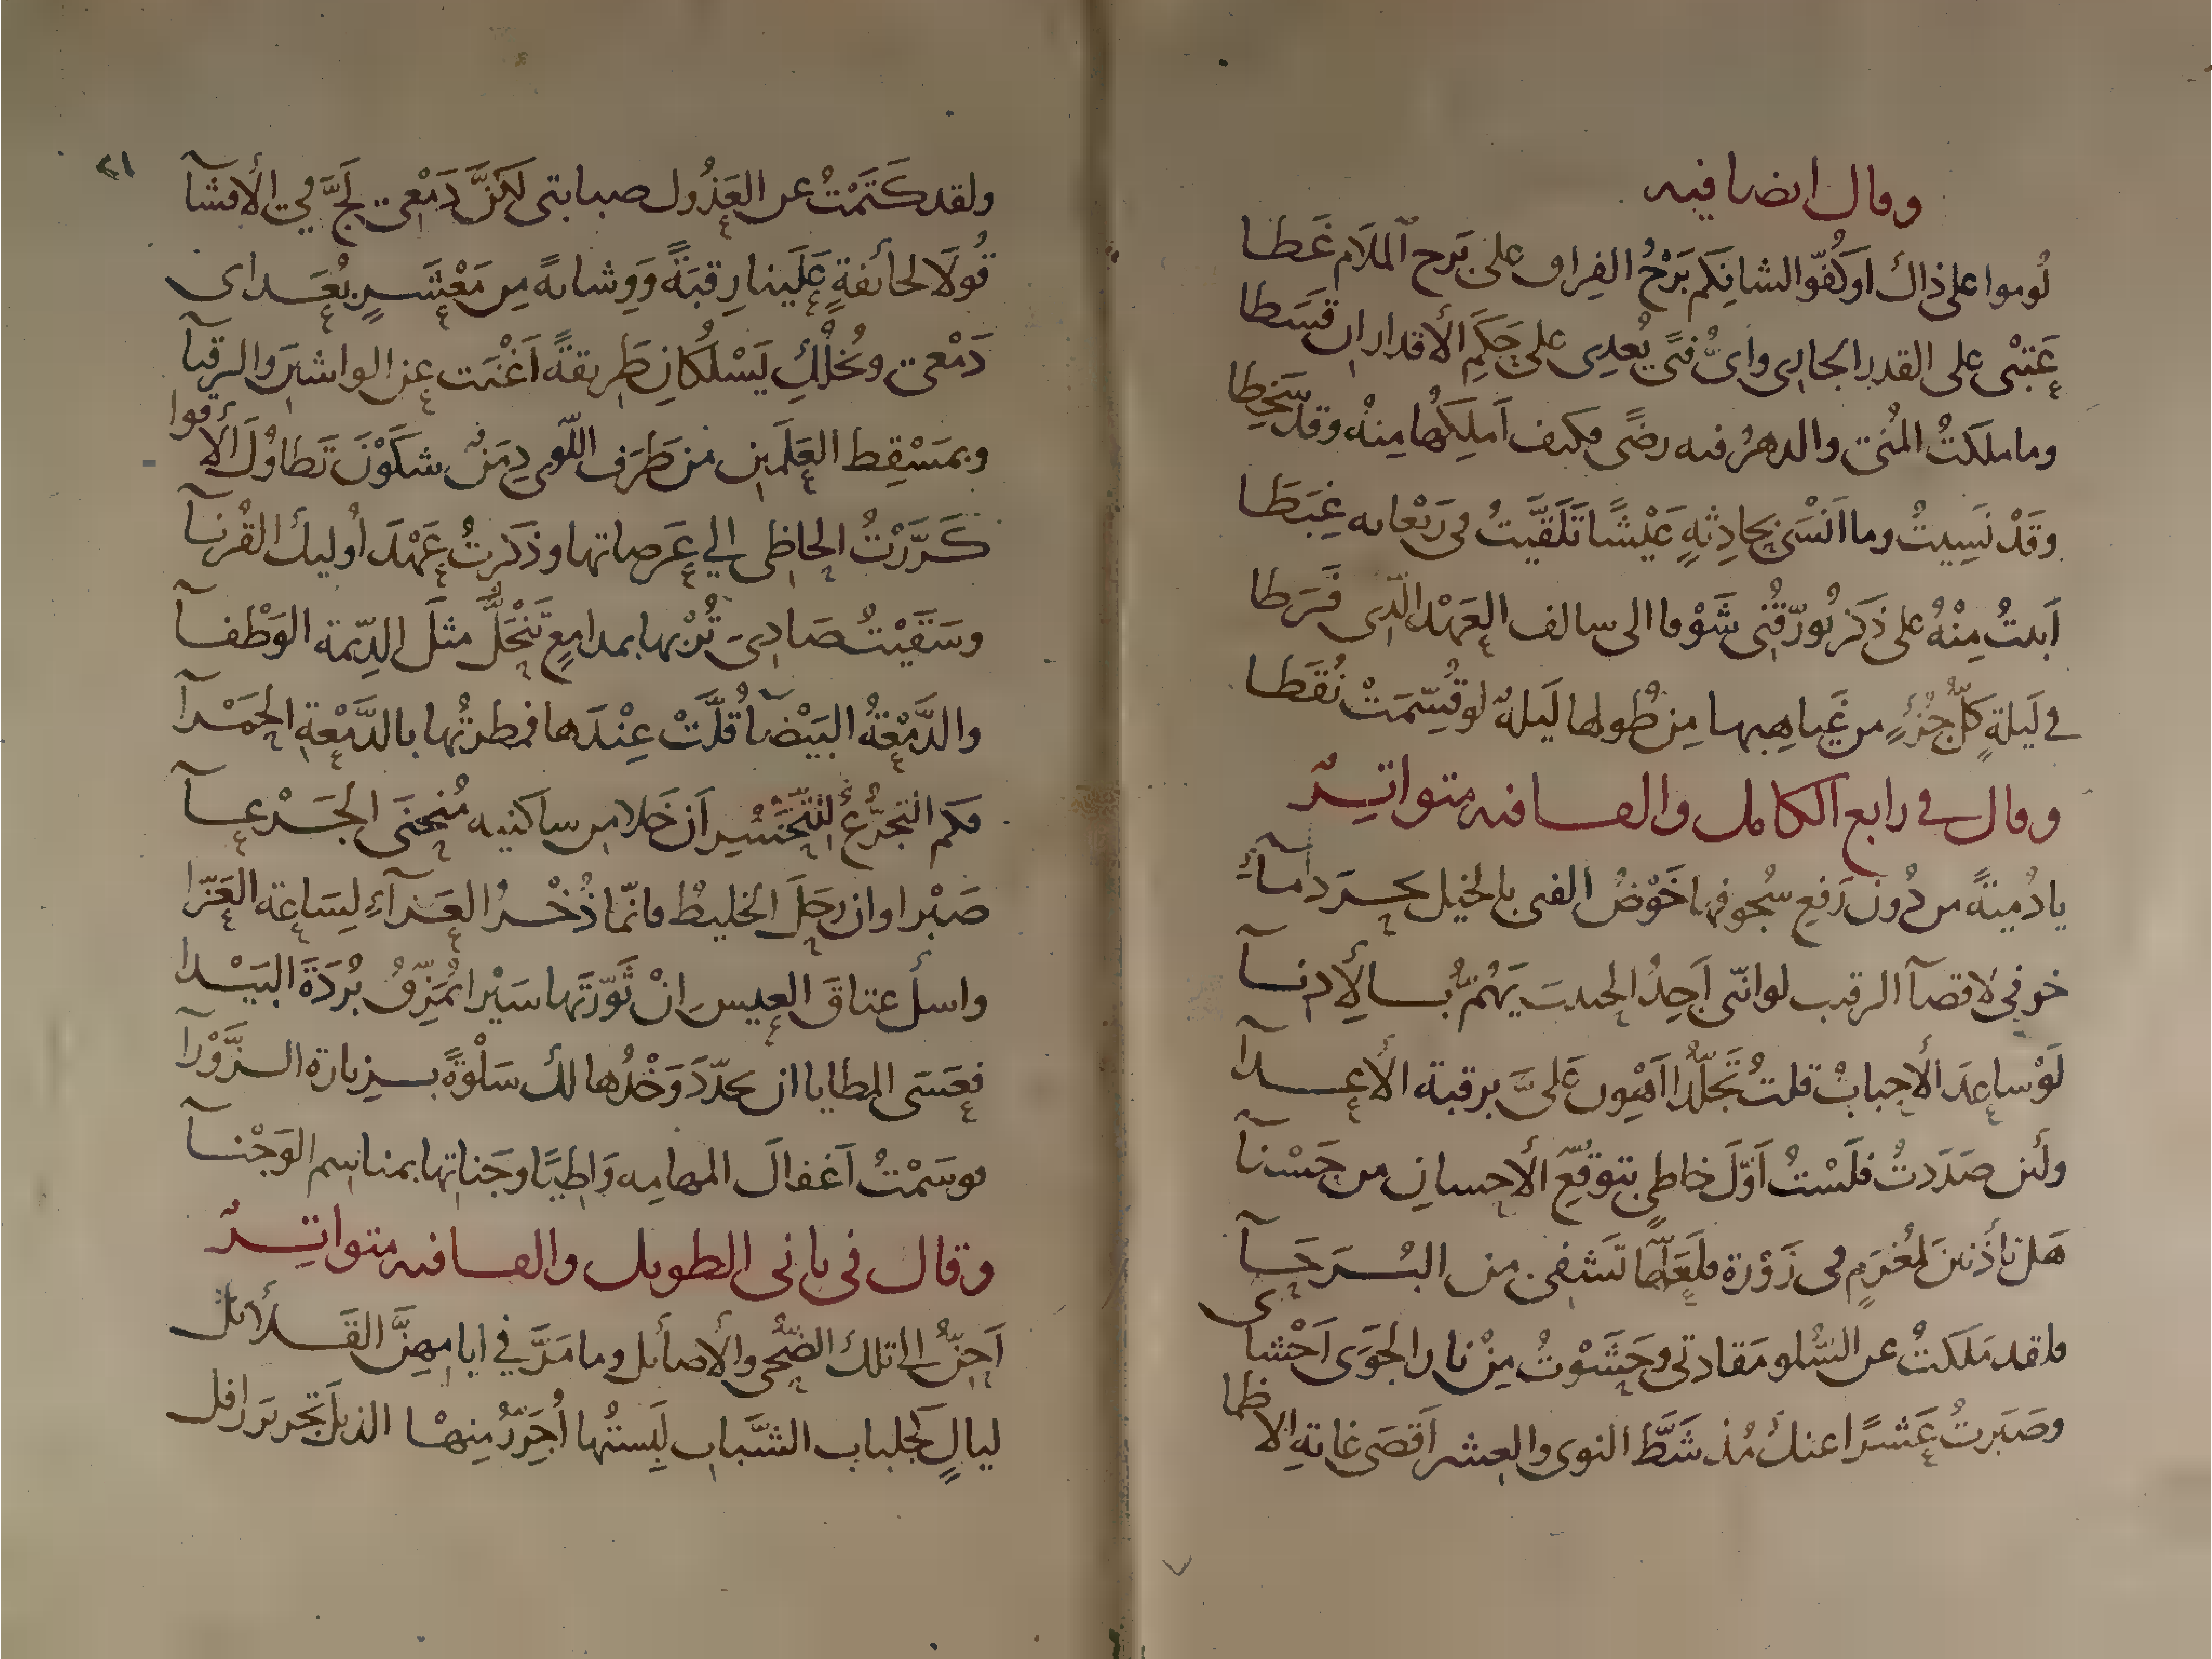 وقال ايضا فيه
لُوموا على ذاك اوكُفّوا لشانِكم بَرْحُ الفِراق على بَرح الملَام غَطا
عَتبْى على القدر الجارى واىُّ فتًى يُعدِى على حَكَمِ الأقدار ان قسَطا
وما ملكتُ المُنى والدهرُ فيه رضًى فكيف أملِكُها مِنهُ وقد سَخِطا
وقَدْ نَسِيتُ وما انْسَى بحادِثةٍ عَيْشًا تَلَقَّيتُ فى رَيْعانه غِبَطَا
أبيتُ مِنْهُ على ذكر يُورّقُنى شَوْقا الى سالف العَهْد الّذى فَرَطا
فى لَيلةٍ كلُّ جُزْءٍ من غَياهِبها مِن طُولها لَيلةٌ لو قُسِّمَتْ نُقَطَا
وقال فى رابع الكامل والقافيه متواتِرٌ
يا دُميةً من دُون رَفعِ سُجوفها خَوْضُ الفتى بالخيل بحر دمآءِ
خوفى لاقصآ الرقيب لو انّى أجِدُ الحبيبَ يَهُمُّ بالأِدنآ
لَوْ ساعدَ الأحبابُ قلتُ تَجَلُّدًا أهْوِن عَلىَّ برقبة الأعدآ
ولَئن صَدَدتُ فلَسْتُ أوّلَ خاطى بتوقُّعِ الأِحسان من حَسْنآ
هَل تأذَنينَ لمُغرَمٍ فى زَوْرة فلَعَلّها تَشفِى من البُرَحآ
فلقد مَلَكتُ عن السُّلو مَقادتى وحَشَوْتُ مِنْ نار الجَوَى أحْشاى
وصَبَرتُ عَشْرًا عنك مُذ شَطَّ النوى والعِشر أقصَى غايةِ الاظما
٢١
ولقد كَتَمْتُ عن العَذُول صبابتى لكنَّ دَمْعى لَجَّ فى الأفشآ
قُولَا لخائفةٍ عَلَينا رِقبَةً وَوِشايةً مِن مَعْشَرٍ بُعَداى
دَمْعى وبُخلُكِ يَسْلُكانِ طَريقةً أغْنَت عن الواشينَ والرقبا
وبمَسْقِط العَلَمَينِ من طَرَف اللّوى دِمَنٌ شكَوْنَ تَطاوُلَ الأقوا
كَرَّرْتُ الحاظِى الى عَرَصاتها وذكَرتُ عَهْدَ أوليك القُرنآ
وسَقَيْتُ صَادِىَ تُرْبها بمدامِعٍ تَنْحَلُّ مثلَ الدِّيمة الوَطْفآ
والدَّمْعَةُ البَيْضآ قُلَّتْ عِنْدَها فمطرتُها بالدَّمْعةِ الحَمْرآ
فكم التجرُّعُ للتحَسُّرِ أن خَلا من ساكنيه مُنحنَى الجَرْعآ
صَبْرا وان رحَلَ الخليطُ فانّما ذُخْرُ العَزآءِ لِسَاعة العَزّا
واسل عتاقَ العِيس انْ ثَوّرتَها سَيْرا يُمَزِّقُ بُرْدَةَ البَيْدا
فعَسَى المطايا ان يجدّدَ وَخْدُها لك سَلْوَةً بزيارة الزَّوْرآ
فوسَمْتُ أغفالَ المهامِه وَاطِيًا وجَناتها بمناسِم الوَجْنآ
وقال فى ثانى الطويل والقافيه متواتِرٌ
أحِنُّ الى تلك الضُّحى والأصائل وما مَرَّ فى ايامهِنَّ القَلائل
ليالٍ كجلباب الشَّباب لَبِستُها أُجَرِّرُ مِنها الذيلَ تجرير رافل